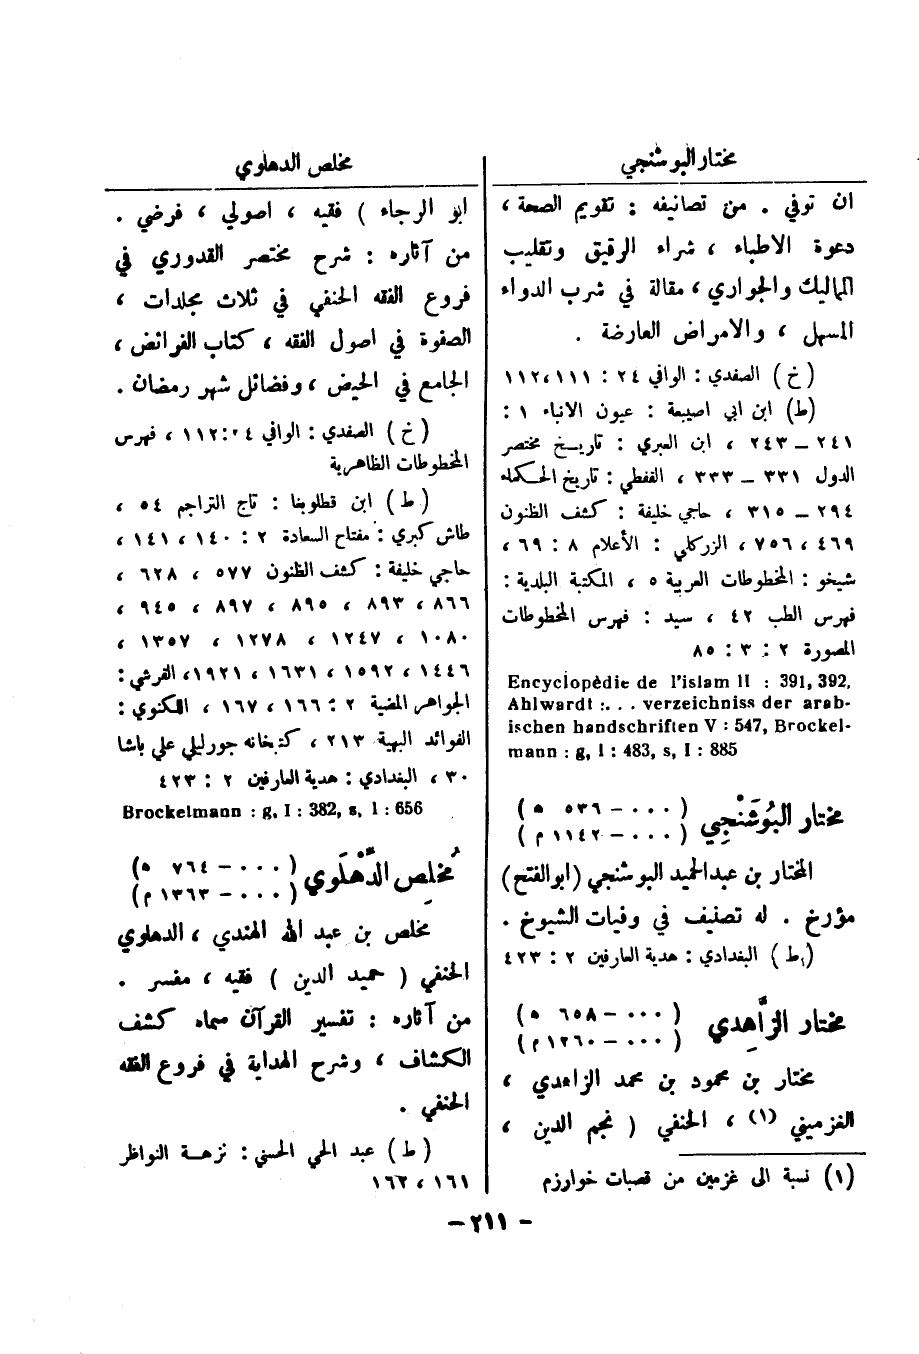 مختار البوشنجي
ان توفي . من تصانيفه : تقويم الصحة ،
دعوة الاطباء ، شراء الرقيق وتقليب
المماليك والجواري ، مقالة في شرب الدواء
المسهل ، والامراض العارضة .
(خ) الصفدي : الوافي ٢٤ : ١١١ ، ١١٢
(ط) ابن ابي اصيبعة : عيون الانباء ١ :
٢٤١ – ٢٤٣ ، ابن العبري : تاريخ مختصر
الدول ٣٣١ – ٣٣٣ ، القفطي : تاريخ الحكماء
٢٩٤ – ٣١٥ ، حاجي خليفة : كشف الظنون
٤٦٩ ، ٧٥٦ ، الزركلي : الأعلام ٨ : ٦٩ ،
شيخو : المخطوطات العربية ٥ ، المكتبة البلدية :
فهرس الطب ٤٢ ، سيد : فهرس المخطوطات
المصورة ٢ : ٣ : ٨٥
Encyclopèdie de l'islam II : 391, 392,
Ahlwardt :. . . verzeichniss der arab-
ischen handschriften V : 547, Brockel-
mann : g, I : 483, s, I : 885
مختار البُوشَنْجِي ( ٠٠٠ – ٥٣٦ ه )
( ٠٠٠ – ١١٤٢ م )
المختار بن عبدالحميد البوشنجي (ابوالفتح)
مؤرخ . له تصنيف في وفيات الشيوخ .
(ط) البغدادي : هدية العارفين ٢ : ٤٢٣
مختار الزَّاهِدي ( ٠٠٠ – ٦٥٨ ه )
( ٠٠٠ – ١٢٦٠ م )
مختار بن محمود بن محمد الزاهدي ،
الغزميني (١) ، الحنفي ( نجم الدين ،
(١) نسبة الى غزمين من قصبات خوارزم
مخلص الدهلوي
ابو الرجاء ) فقيه ، اصولي ، فرضي .
من آثاره : شرح مختصر القدوري في
فروع الفقه الحنفي في ثلاث مجلدات ،
الصفوة في اصول الفقه ، كتاب الفرائض ،
الجامع في الحيض ، وفضائل شهر رمضان .
(خ) الصفدي : الوافي ٢٤ : ١١٢ ، فهرس
المخطوطات الظاهرية
(ط) ابن قطلوبغا : تاج التراجم ٥٤ ،
طاش كبري : مفتاح السعادة ٢ : ١٤٠ ، ١٤١ ،
حاجي خليفة : كشف الظنون ٥٧٧ ، ٦٢٨ ،
٨٦٦ ، ٨٩٣ ، ٨٩٥ ، ٨٩٧ ، ٩٤٥ ،
١٠٨٠ ، ١٢٤٧ ، ١٢٧٨ ، ١٣٥٧ ،
١٤٤٦ ، ١٥٩٢ ، ١٦٣١ ، ١٩٢١ ، القرشي :
الجواهر المضية ٢ : ١٦٦ ، ١٦٧ ، اللكنوي :
الفوائد البهية ٢١٣ ، كتبخانه جورليلي علي باشا
٣٠ ، البغدادي : هدية العارفين ٢ : ٤٢٣
Brockelmann : g, I : 382, s, I : 656
مُخلِص الدِّهْلَوي ( ٠٠٠ – ٧٦٤ ه )
( ٠٠٠ – ١٣٦٣ م )
مخلص بن عبد الله الهندي ، الدهلوي
الحنفي ( حميد الدين ) فقيه ، مفسر .
من آثاره : تفسير القرآن سماه كشف
الكشاف ، وشرح الهداية في فروع الفقه
الحنفي .
(ط) عبد الحي الحسني : نزهة النواظر
١٦١ ، ١٦٢
– ٢١١ –